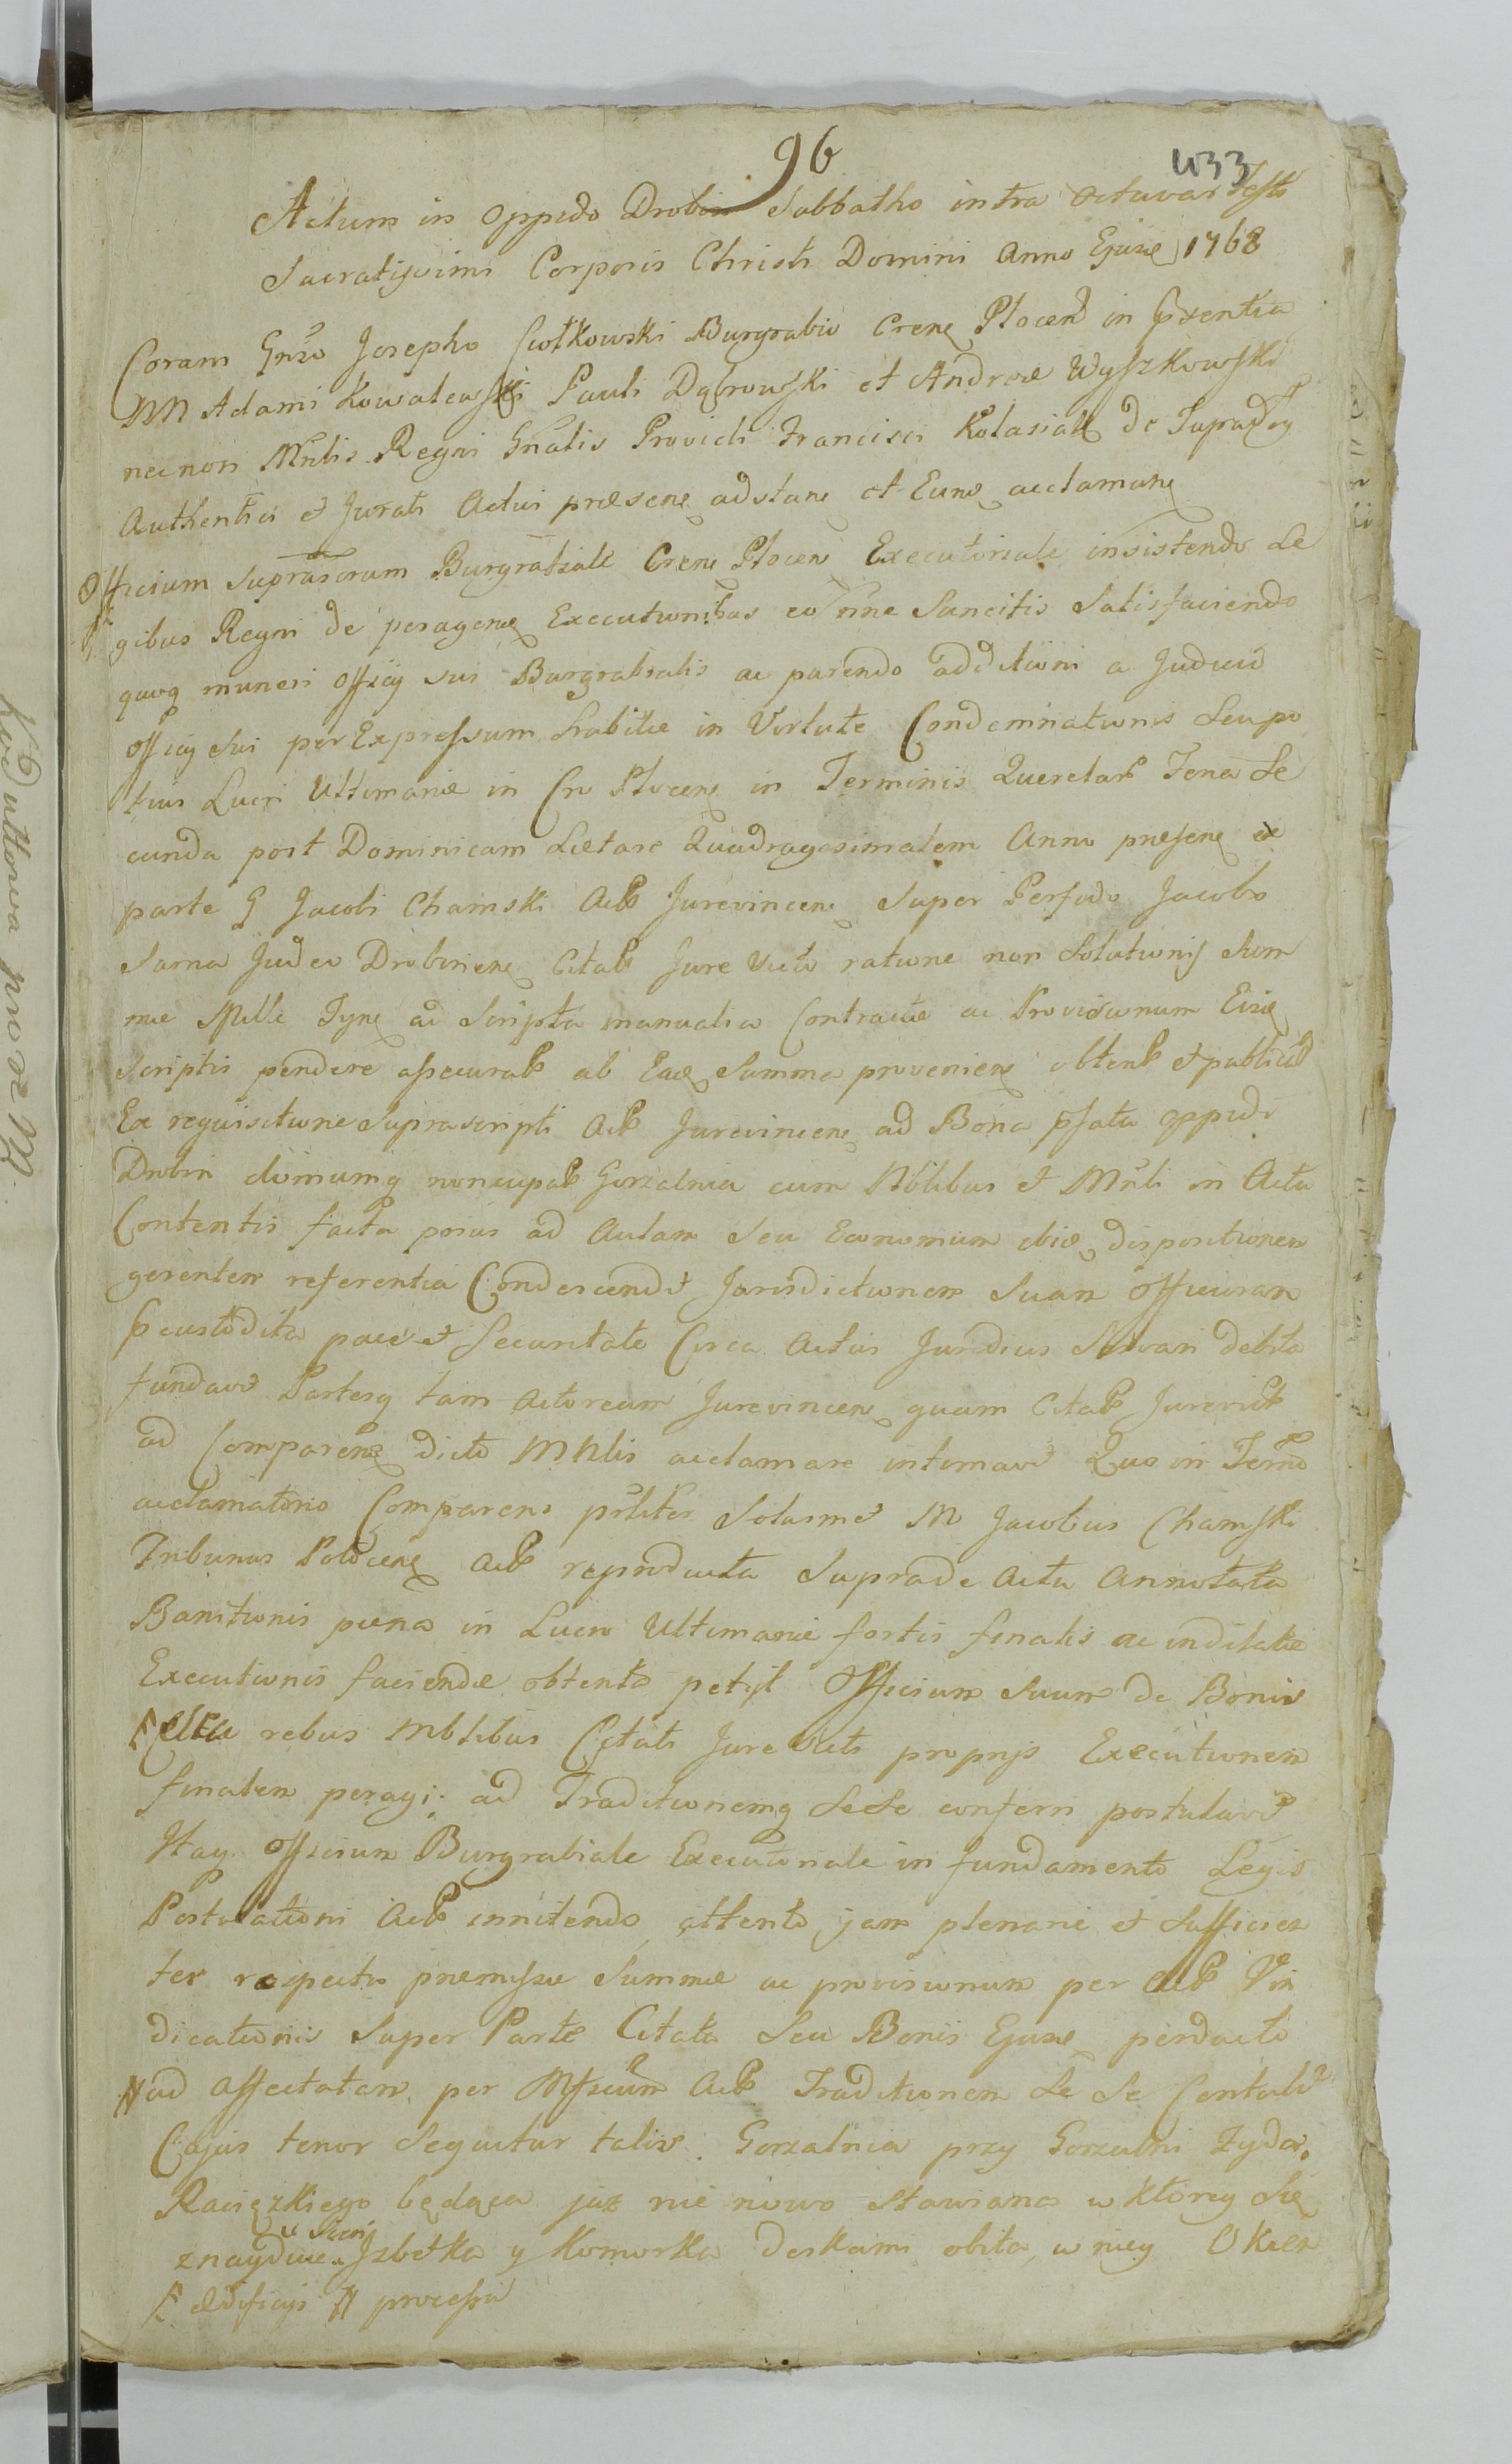 96
433
Actum in Oppido Drobin Sabbatho intra Octavas Festi
Sacratissimi Corporis Christi Domini Anno Ejusd 1768
Coram Gnso Josepho Ciołkowski Burgrabio Crens Plocen in Pxentia
MM Adami Kowalewski Pauli Dąbrowski et Andreæ Wyszkowski
necnon Mnlis Regni Gnalis Providi Francisci Kołasiak de
Authentici et Jurati Actui præsens adstans et Euns acclamans
Officium Suprascrum Burgrabiale Crens Plocen Executoriale insistendo Le
gibus Regni de peragens Executionibus eo nne Sancitis Satisfaciendo
quoq muneri Officij sui Burgrabialis ac parendo additioni a Judicio
Officij Sui per Expressum habitæ in Virtute Condemnationis Seu po
tius Lucri Ultimariæ in Cro Plocens in Terminis Querelar Feria Se
cunda post Dominicam Lætare Quadragesimalem Anno præsens ex
parte G Jacobi Chamski Act Jurevincens Super Perfido Jacobo
Sarna Judeo Drobinens Citat Jure Victo ratione non Solutionis Sum
mæ Mille Tyns ad Scripta manualia Contractæ ac Provisionum Eisd
Scriptis pendere assecurat ab Ead Summa proveniens obtent et publicat
Ex requisitione Suprascripti Act Jurevincens ad Bona pfata Oppidi
Drobin domumq nuncupat Gorzalnia cum Nobilibus et Mnli in Actu
Contentis facta prius ad Aulam Seu Economum ibid dispositionem
gerentem referentia Condescendit Jurisdictionem Suam Officiosam
Pcustodita pace et Securitate Circa Actus Juridicos Servari debita
fundavit Partesq tam Actoream Jurevincens quam Citat Jurevict
ad Comparens dicto Mnlis acclamare intimavit Quo in Termo
acclamatorio Comparens psnliter Solusmet M Jacobus Chamski
Tribunus Polocens Act reproducta Suprade Actu Annotata
Banitionis pœna in Lucro Ultimariæ fortis finalis ac indilatæ
Executionis faciendæ obtenta petyt Officium Suum de Bonis
rebus mblibus Citati Jure Victi proprijs Executionem
finalem peragi ad Traditionemq Sese conferri postulavit
Itaq Officium Burgrabiale Executoriale in fundamento Legis
Postulationi Act innitendo attento jam plenarie et Sufficien
ter respectu præmissæ Summæ ac provisionum per Act Vin
dicationis Super Parte Citata Seu Bonis Ejusd perducto
# ad affectatam per Mficum Act Traditionem Se Se Contulit
Cujus tenor Sequitur talis. Gorzalnia przy Gorzalni Żyda
Raciązkiego będąca już nie nowo stawiana w ktorey Się
w Sieni
znayduie Izbetka y Komorka deskami obita, w niey Okien
ædificijs # processu